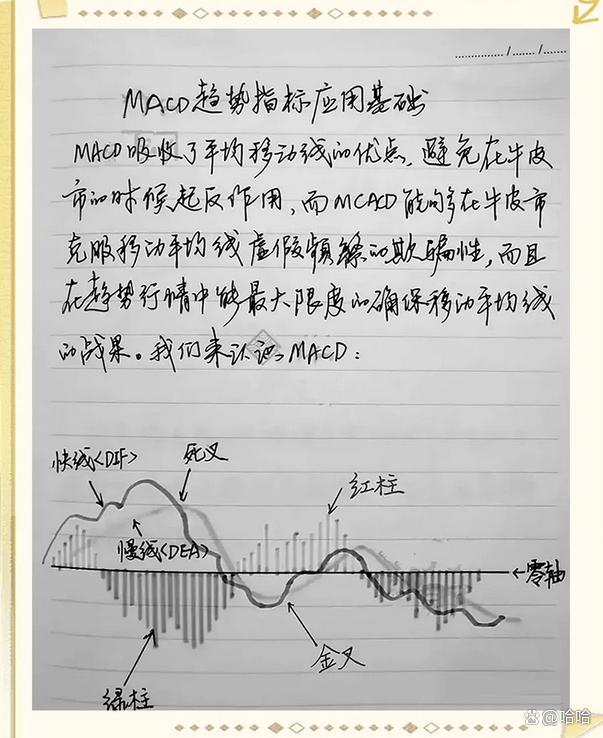 ....../....../......
MACD趋势指标应用基础
MACD吸收了平均移动线的优点,避免在牛皮
市的时候起反作用,而MCACD能够多在牛皮市
克服移动平均线虚假频繁的欺骗性,而且
在趋势行情中能最大限度的确保移动平均线
的战果。我们来认识MACD:
快线<DIF>
死叉
红柱
慢线<DEA>
←零轴
金叉
绿柱
哈哈